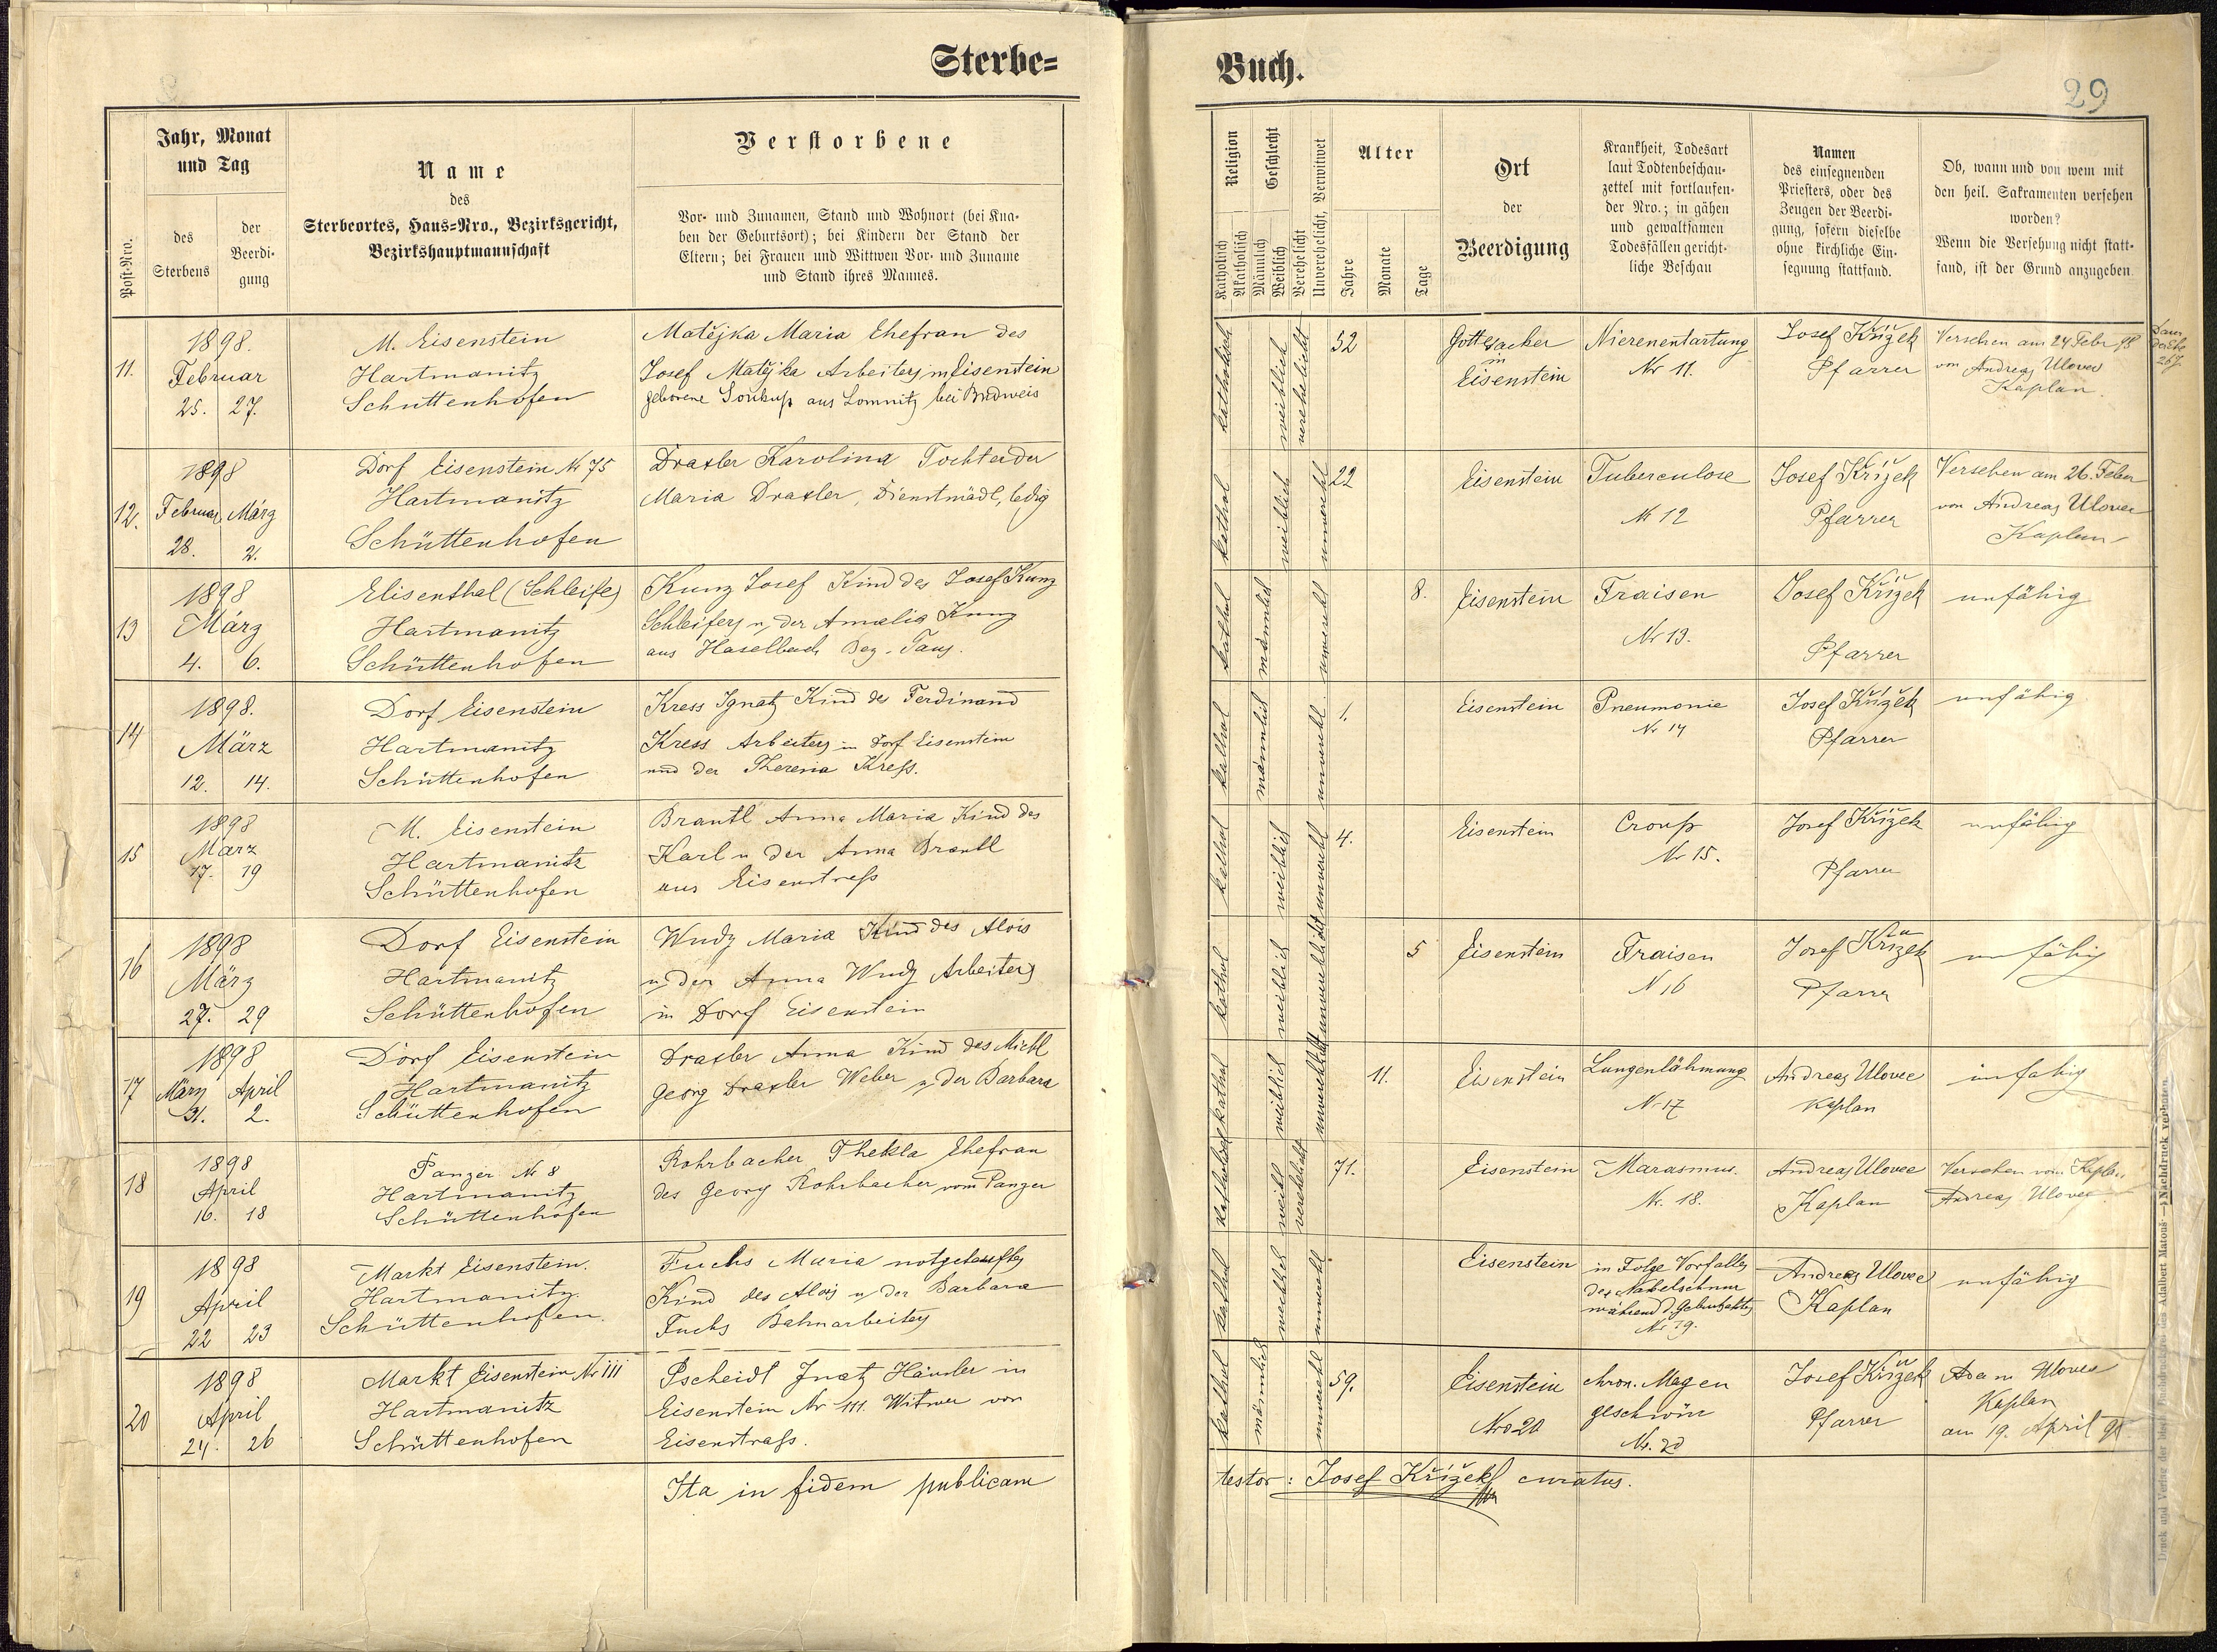 Sterbe=
Jahr, Monat
und Tag
des
Sterbens
der
Beerdi-
gung
Post-Nro.
Name
des
Sterbeortes, Haus=Nro., Bezirksgericht,
Bezirkshauptmannschaft
Verstorbene
Vor- und Zunamen, Stand und Wohnort (bei Kna-
ben der Geburtsort); bei Kindern der Stand der
Eltern; bei Frauen und Wittwen Vor- und Zuname
und Stand ihres Mannes.
11.
1898.
Februar
25. 27.
M. Eisenstein
Hartmanitz
Schüttenhofen
Matějka Maria Ehefrau des
Josef Matějka Arbeiters in Eisenstein
geborene Soukup aus Lomnitz bei Budweis
12.
1898
Februar März
28. 2.
Dorf Eisenstein Nr 75
Hartmanitz
Schüttenhofen
Draxler Karolina Tochter der
Maria Draxler, Dienstmädl, ledig
13
1898
März
4. 6.
Elisenthal (Schleife)
Hartmanitz
Schüttenhofen
Kunz Josef Kind des Josef Kunz
Schleifers u. der Amalia Kunz
aus Haselbach Bez. Taus.
14
1898.
März
12. 14.
Dorf Eisenstein
Hartmanitz
Schüttenhofen
Kress Ignatz Kind des Ferdinand
Kress Arbeiters in Dorf Eisenstein
und der Theresia Kreß.
15
1898
März
17. 19
M. Eisenstein
Hartmanitz
Schüttenhofen
Brantl Anna Maria Kind des
Karl u der Anna Brantl
aus Eisenstraß
16
1898
März
27. 29
Dorf Eisenstein
Hartmanitz
Schüttenhofen
Wudy Maria Kind des Alois
u. der Anna Wudy Arbeiters
in Dorf Eisenstein
17
1898
März April
31. 2.
Dorf Eisenstein
Hartmanitz
Schüttenhofen
Draxler Anna Kind des Michl
Georg Draxler Weber u. der Barbara
18
1898
April
16. 18
Panzer Nr 8
Hartmanitz
Schüttenhofen
Rohrbacher Thekla Ehefrau
des Georg Rohrbacher vom Panzer
19
1898
April
22 23
Markt Eisenstein.
Hartmanitz.
Schüttenhofen.
Fuchs Maria notgetauftes
Kind des Alois u. der Barbara
Fuchs Bahnarbeiters
20
1898
April
24. 26
Markt Eisenstein Nr 111
Hartmanitz
Schüttenhofen
Pscheidt Ignatz Häusler in
Eisenstein Nr 111. Witwer von
Eisenstraß.
Ita in fidem publicam
Buch.
29
Religion
Katholisch
Akatholisch
Geschlecht
Männlich
Weiblich
Verehelicht
Unverehelicht, Verwitwet
Alter
Jahre
Monate
Tage
Ort
der
Beerdigung
Krankheit, Todesart
laut Todtenbeschau-
zettel mit fortlaufen-
der Nro.; in gähen
und gewaltsamen
Todesfällen gericht-
liche Beschau
Namen
des einsegnenden
Priesters, oder des
Zeugen der Beerdi-
gung, sofern dieselbe
ohne kirchliche Ein-
segnung stattfand.
Ob, wann und von wem mit
den heil. Sakramenten versehen
worden?
Wenn die Versehung nicht statt-
fand, ist der Grund anzugeben.
katholisch
weiblich
verehelicht
52
Gottesacker
in
Eisenstein
Nierenentartung
Nr 11.
Josef Křížek
Pfarrer
Versehen am 24 Febr 98
von Andreas Ulovec
Kaplan.
kathol
weiblich
unverehl
22
Eisenstein
Tuberculose
Nr 12
Josef Křížek
Pfarrer
Versehen am 26. Feber
von Andreas Ulovec
Kaplan
kathol
männlich
unverehl
8.
Eisenstein
Fraisen
Nr 13.
Josef Křížek
Pfarrer
unfähig
kathol
männlich
unverehl.
1.
Eisenstein
Pneumonie
Nr 14
Josef Křížek
Pfarrer
unfähig
kathol
weiblich
unverehl
4.
Eisenstein
Croup
Nr 15.
Josef Křížek
Pfarrer
unfähig
kathol
weiblich
unverehelicht
5
Eisenstein
Fraisen
N 16
Josef Křížek
Pfarrer
unfähig
kathol
weiblich
unverehelicht
11.
Eisenstein
Lungenlähmung
Nr 17
Andreas Ulovec
Kaplan
unfähig
katholisch
weibl
verehelicht
71.
Eisenstein
Marasmus.
Nr. 18.
Andreas Ulovec
Kaplan
Versehen vom Kaplan
Andreas Ulovec
kathol
unverehl
Eisenstein
in Folge Vorfalles
der Nabelschnur
während d. Geburtsaktes
Nr 19.
Andreas Ulovec
Kaplan
unfähig
kathol
männlich
unverehl
59.
Eisenstein
Nro 20
chron. Magen
geschwür
Nr. 20
Josef Křížek
Pfarrer
Ulovec
Kaplan
am 19. April 98.
testor: Josef Křížek curatus.
Druck und Verlag der Adalbert Matouš — Nachdruck verboten.